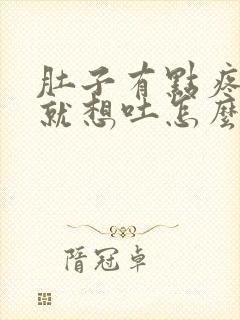 肚子有點疼
就想吐怎麼
隋冠卓